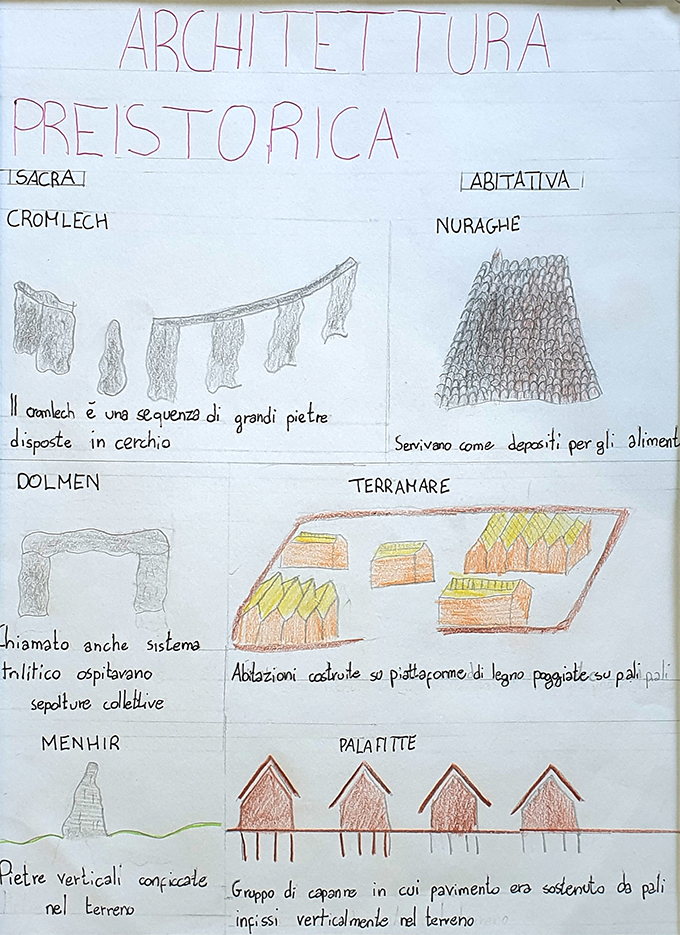 ARCHITETTURA
PREISTORICA
SACRA
CROMLECH
Il cromlech è una sequenza di grandi pietre
disposte in cerchio
DOLMEN
Chiamato anche sistema
trilitico ospitavano
sepolture collettive
MENHIR
Pietre verticali conficcate
nel terreno
ABITATIVA
NURAGHE
Servivano come depositi per gli aliment
TERRAMARE
Abitazioni costruite su piattaforme di legno poggiate su pali pali
PALAFITTE
Gruppo di capanne in cui pavimento era sostenuto da pali
infissi verticalmente nel terreno